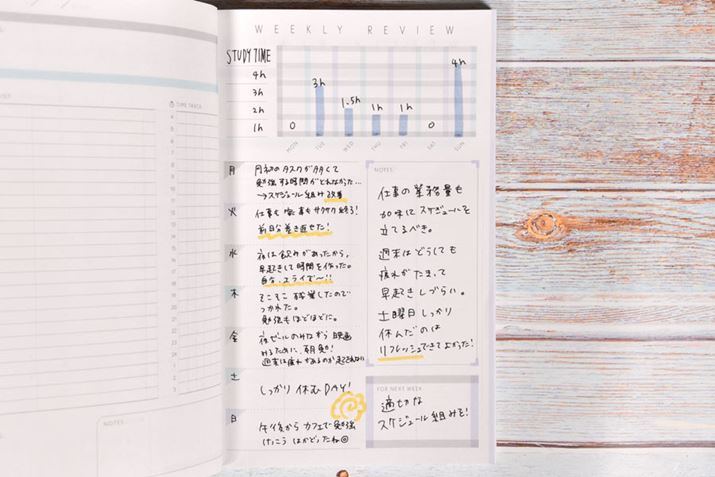 WEEKLY REVIEW
STUDY TIME
4h
3h
2h
1h
0
3h
1.5h
1h
1h
0
4h
MON
TUE
WED
THU
FRI
SAT
SUN
月
月初のタスクが多くて
勉強する時間がとれなかった…
→スケジュール組み改善
火
仕事も家事もサクサク終る!
前日分巻き返せた!
水
夜は飲みがあったから、
早起きして時間を作った。
自分、エライぞ〜!!
木
そこそこ残業したので
つかれた。
勉強もほどほどに。
金
夜ビールのみながら映画
みるために、朝勉!
週末は疲れがあるのか起きれない
土
しっかり休むDAY!
日
午後からカフェで勉強
けっこうはかどったね
NOTES
仕事の業務量も
加味にスケジュールを
立てるべき。
週末はどうしても
疲れがたまって
早起きしづらい。
土曜日しっかり
休んだのは
リフレッシュできてよかった!
FOR NEXT WEEK
適切な
スケジュール組みを!
TIME TRACK
NOTES